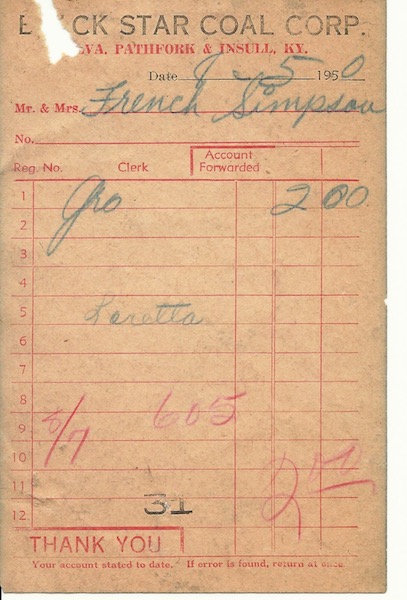 B CK STAR COAL CORP.
VA, PATHFORK & INSULL, KY.
Date 8-5 1950
Mr. & Mrs. French Simpson
No.
Reg. No. Clerk Account Forwarded
1 Gro 2 00
2
3
4
5 Loretta
6
7
8 605
9 8/7
10 2 00
11
12 31
THANK YOU
Your account stated to date. If error is found, return at once.